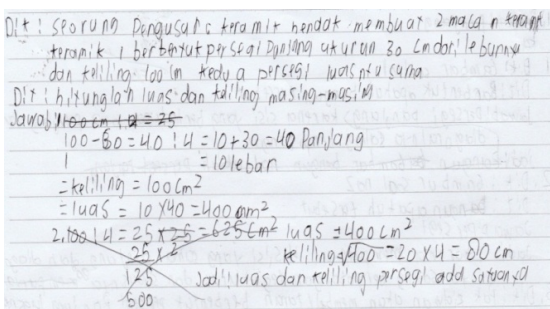 Dit : seorung Pengusaha keramik hendak membuat 2 macam keramik
keramik 1 berbentuk persegi Panjang ukuran 30 cm dari lebarnya
dan keliling 100 cm kedua persegi luasnya sama
Dit : hitunglah luas dan keliling masing-masing
Jawab : 100 cm : 4 = 25
100 - 60 = 40 : 4 = 10 + 30 = 40 Panjang
1 = 10 lebar
= keliling = 100 cm²
= luas = 10 x 40 = 400 cm²
2. 100 : 4 = 25 x 25 = 625 cm² luas = 400 cm²
25 x 2 keliling = √400 = 20 x 4 = 80 cm
125 Jadi : luas dan keliling persegi add satuanya
500